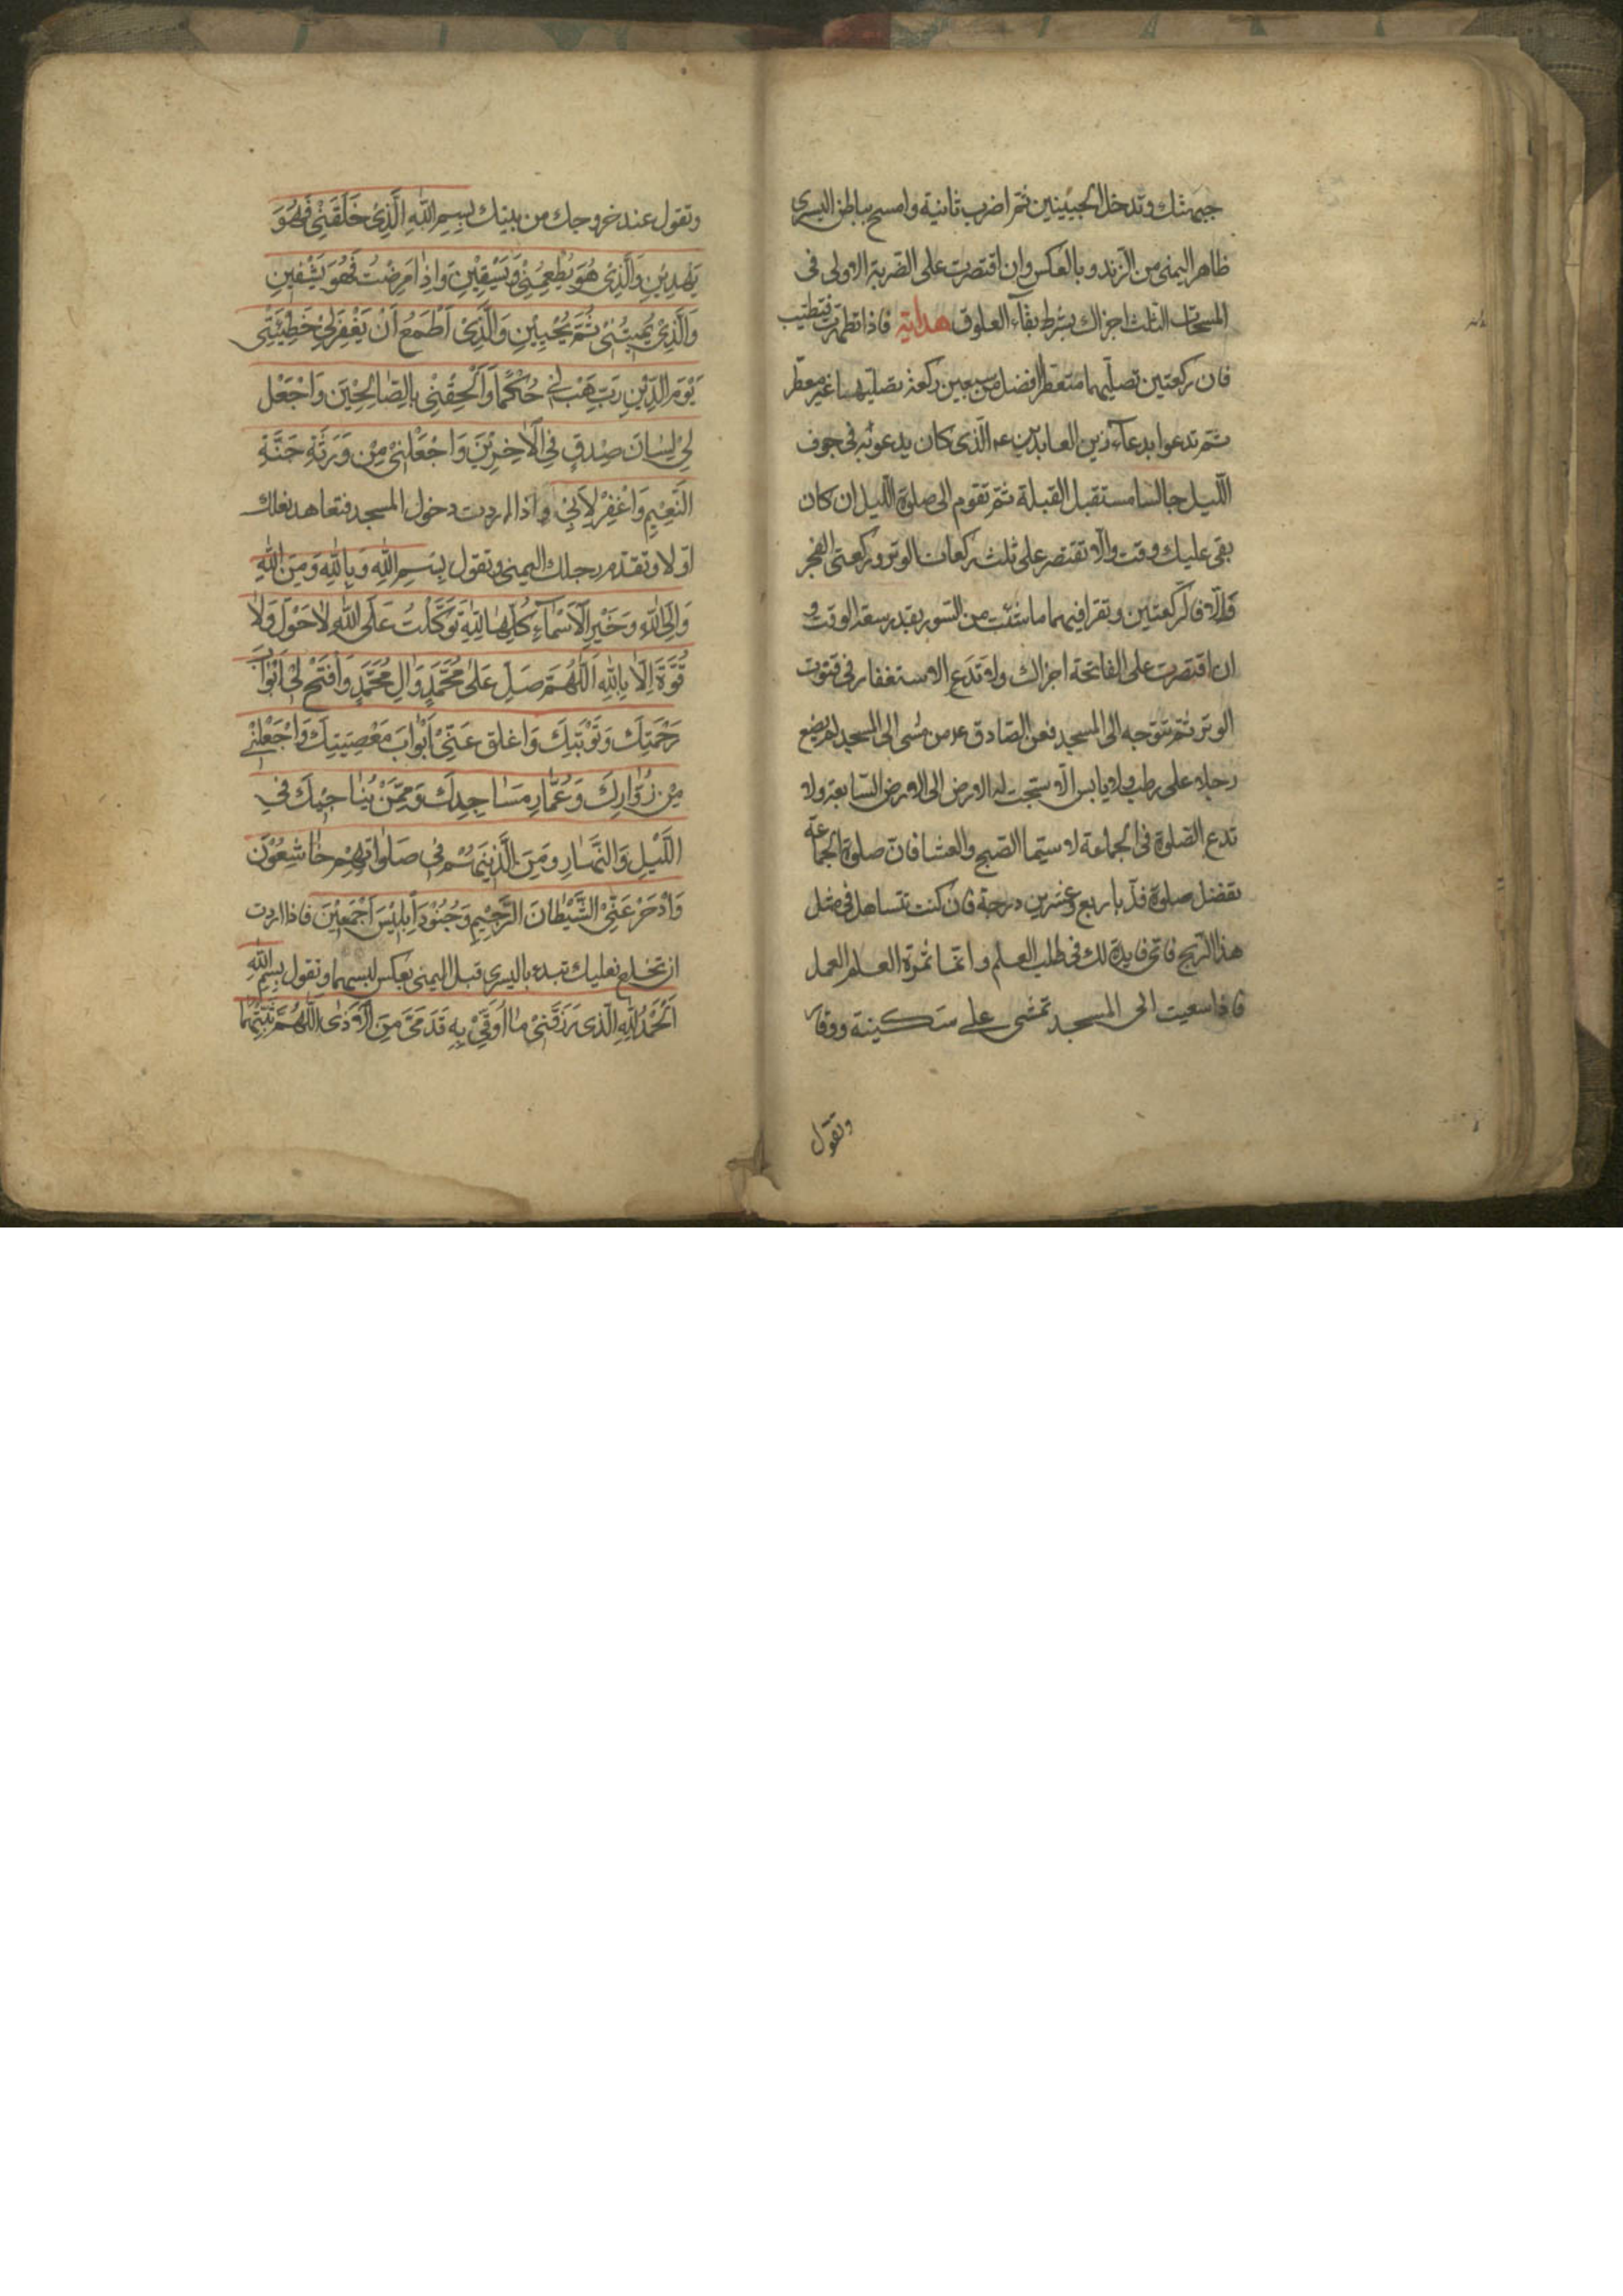 جبهتك وتدخل الجبينين ثم اضرب ثانية وامسح بباطن اليسرى
ظاهر اليمنى من الزند وبالعكس وان اقتصرت على الضربة الاولى في
المسحات الثلث اجزاك بشرط بقاء العلوق هداية فاذا تطهرت فتطيب
فان ركعتين تصليهما متعطرا افضل من سبعين ركعة تصليها غير معطر
ثم تدعوا بدعاء زين العابدين ع الذى كان يدعو به في جوف
الليل جالسا مستقبل القبلة ثم تقوم الى صلوة الليل ان كان
بقى عليك وقت والا تقتصر على ثلث ركعات الوتر وركعتى الفجر
والا فالركعتين وتقرا فيهما ما شئت من السور بقدر سعة الوقت و
ان اقتصرت على الفاتحة اجزاك ولا تدع الاستغفار في قنوت
الوتر ثم تتوجه الى المسجد فعن الصادق ع من مشى الى المسجد لم يضع
رجلا على رطب ولا يابس الا سبحت له الارض الى الارض السابعة ولا
تدع الصلوة في الجماعة لا سيما الصبح والعشا فان صلوة الجماعة
تفضل صلوة فذ باربع وعشرين درجة فان كنت تتساهل في مثل
هذا الربح فاى فايدة لك في طلب العلم وانما ثمرة العلم العمل
فاذا سعيت الى المسجد تمشى على سكينة ووقار
وتقول
وتقول عند خروجك من بيتك بِسِمِ اللّٰهِ الَّذِىْ خَلَقَنِىْ فَهُوَ
يَهْدِيْنِ وَالَّذِىْ هُوَ يُطْعِمُنِىْ وَيَسْقِيْنِ وَاِذَا مَرِضْتُ فَهُوَ يَشْفِيْنِ
وَالَّذِىْ يُمِيْتُنِىْ ثُمَّ يُحْيِيْنِ وَالَّذِىْ اَطْمَعُ اَنْ يَغْفِرَ لِىْ خَطِيْئَتِى
يَوْمَ الدِّيْنِ رَبِّ هَبْ لِىْ حُكْمًا وَاَلْحِقْنِىْ بِالصَّالِحِيْنَ وَاجْعَلْ
لِىْ لِسَانَ صِدْقٍ فِى الْاٰخِرِيْنَ وَاجْعَلْنِىْ مِنْ وَرَثَةِ جَنَّةِ
النَّعِيْمِ وَاغْفِرْ لِاَبِىْ واذا اردت دخول المسجد فتعاهد نعلك
اولا وتقدم رجلك اليمنى وتقول بِسْمِ اللّٰهِ وَبِاللّٰهِ وَمِنَ اللّٰهِ
وَاِلَى اللّٰهِ وَخَيْرِ الْاَسْمَاءِ كُلِّهَا لِلّٰهِ تَوَكَّلْتُ عَلَى اللّٰهِ لَا حَوْلَ وَلَا
قُوَّةَ اِلَّا بِاللّٰهِ اَللّٰهُمَّ صَلِّ عَلٰى مُحَمَّدٍ وَاٰلِ مُحَمَّدٍ وَافْتَحْ لِىْ اَبْوَابَ
رَحْمَتِكَ وَتَوْبَتِكَ وَاغلق عَنِّىْ اَبْوَابَ مَعْصِيَتِكَ وَاجْعَلْنِىْ
مِنْ زُوَّارِكَ وَعُمَّارِ مَسَاجِدِكَ وَمِمَّنْ يُنَاجِيْكَ فِى
اللَّيْلِ وَالنَّهَارِ وَمِنَ الَّذِيْنَ هُمْ فِى صَلَوَاتِهِمْ خَاشِعُوْنَ
وَادْحَرْ عَنِّىْ الشَّيْطَانَ الرَّجِيْمَ وَجُنُوْدَ اِبْلِيْسَ اَجْمَعِيْنَ فاذا اردت
ان تخلع نعليك تبدء باليسرى قبل اليمنى بعكس لبسهما وتقول بِسْمِ اللّٰهِ
اَلْحَمْدُ لِلّٰهِ الَّذى رَزَقَنِىْ مَا اُوَقِّىْ بِهِ قَدَمَىَّ مِنَ الْاَذٰى اَللّٰهُمَّ ثَبِّتْهُمَا